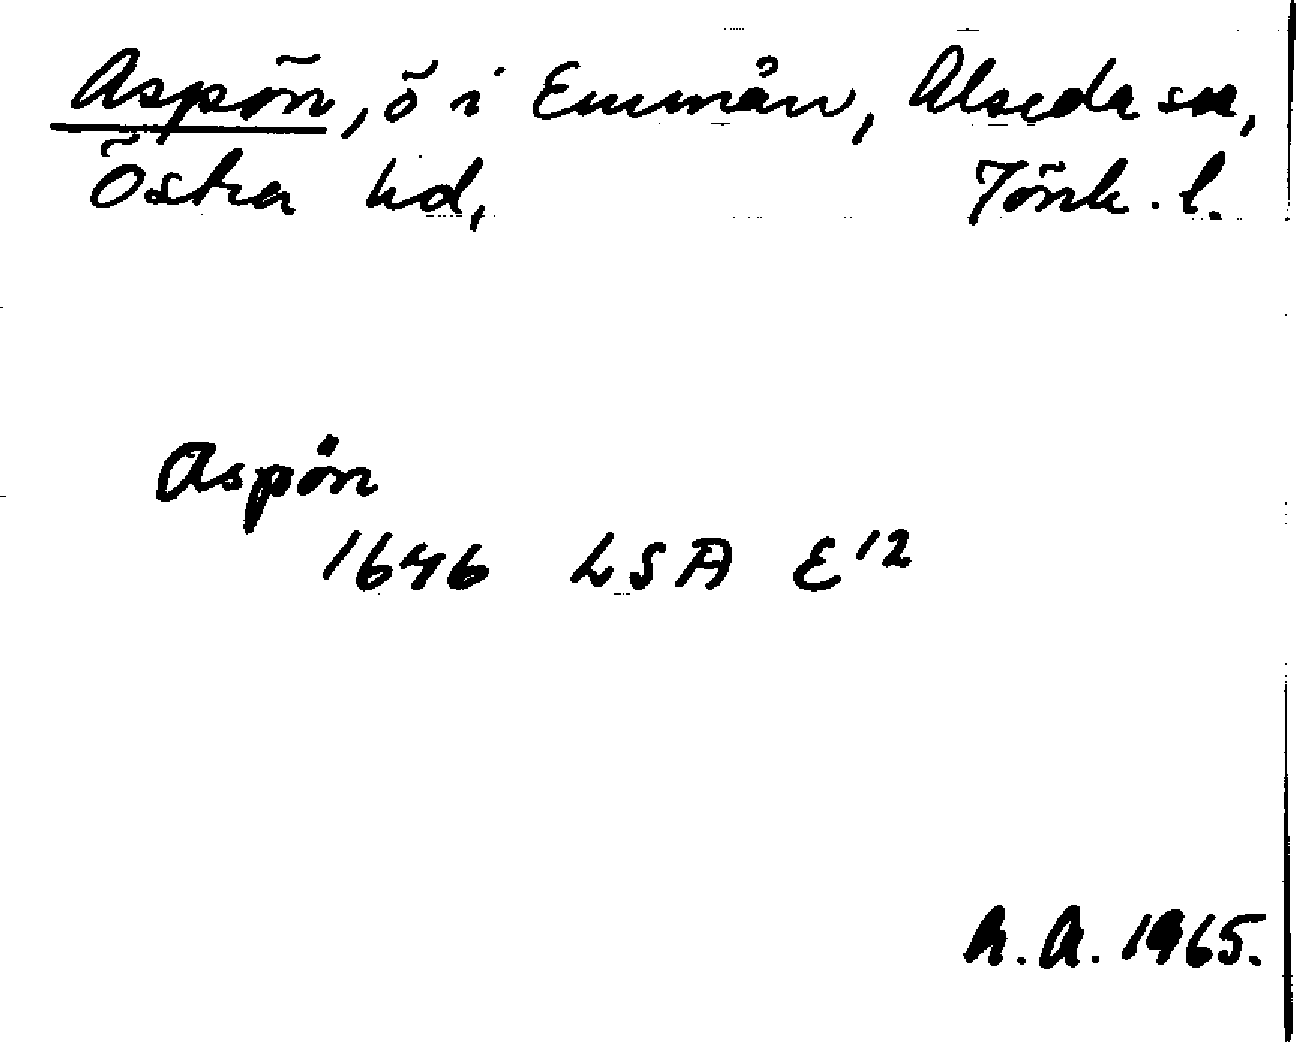 Aspön, ö i Emmån, Alseda sn,
Östra hd, Jönk. l.
Aspön
1646 LSA E 12
R.A. 1965.